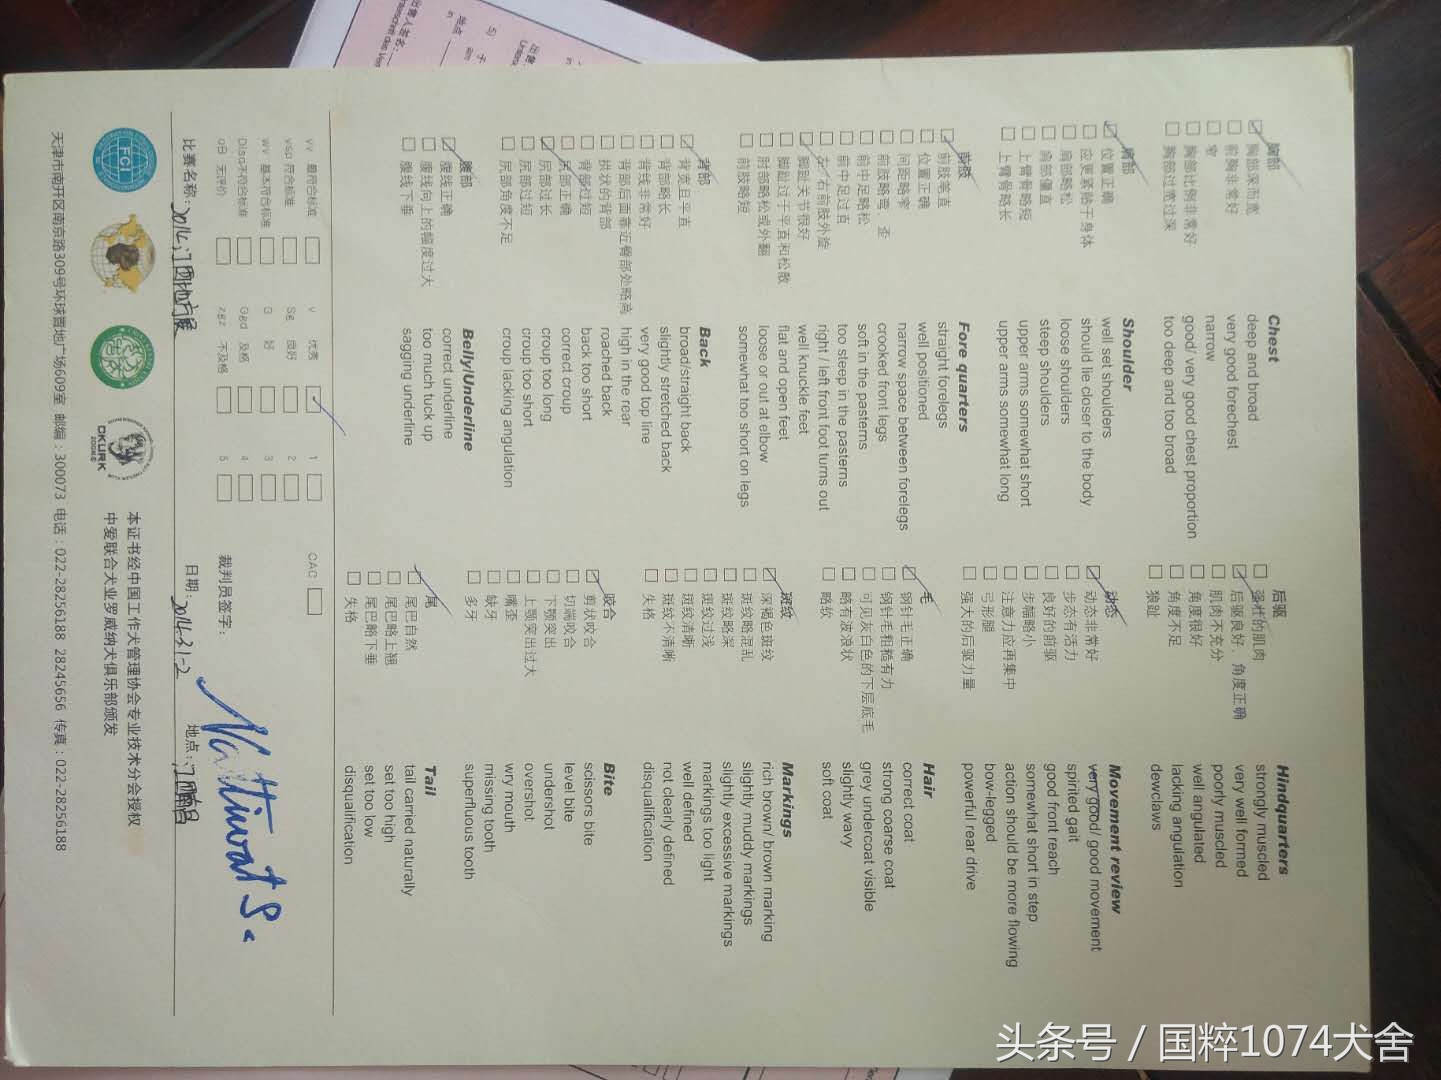 胸部
胸部深而宽
前胸非常好
窄
胸部比例非常好
胸部过宽过深
Chest
deep and broad
very good forechest
narrow
good/ very good chest proportion
too deep and too broad
肩部
位置正确
应更紧贴于身体
肩部略松
肩部僵直
上臂骨略短
上臂骨略长
Shoulder
well set shoulders
should lie closer to the body
loose shoulders
steep shoulders
upper arms somewhat short
upper arms somewhat long
前肢
前肢笔直
位置正确
间距略窄
前肢略弯、歪
前中足略松
前中足过直
左、右前肢外旋
脚趾关节很好
脚趾过于平直和松散
肘部略松或外翻
前肢略短
Fore quarters
straight forelegs
well positioned
narrow space between forelegs
crooked front legs
soft in the pasterns
too steep in the pasterns
right / left front foot turns out
well knuckle feet
flat and open feet
loose or out at elbow
somewhat too short on legs
背部
背宽且平直
背部略长
背线非常好
背部后面靠近臀部处略高
拱状的背部
背部过短
尻部正确
尻部过长
尻部过短
尻部角度不足
Back
broad/straight back
slightly stretched back
very good top line
high in the rear
roached back
back too short
correct croup
croup too long
croup too short
croup lacking angulation
腹部
腹线正确
腹线向上的幅度过大
腹线下垂
Belly/Underline
correct underline
too much tuck up
sagging underline
后驱
强壮的肌肉
后驱良好、角度正确
肌肉不充分
角度很好
角度不足
狼趾
Hindquarters
strongly muscled
very well formed
poorly muscled
well angulated
lacking angulation
dewclaws
动态
动态非常好
步态有活力
良好的前驱
步幅略小
注意力应再集中
弓形腿
强大的后驱力量
Movement review
very good/ good movement
spirited gait
good front reach
somewhat short in step
action should be more flowing
bow-legged
powerful rear drive
毛
钢针毛正确
钢针毛粗糙有力
可见灰白色的下层底毛
略有波浪状
略软
Hair
correct coat
strong coarse coat
grey undercoat visible
slightly wavy
soft coat
斑纹
深褐色斑纹
斑纹略混乱
斑纹略深
斑纹过浅
斑纹清晰
斑纹不清晰
失格
Markings
rich brown/ brown marking
slightly muddy markings
slightly excessive markings
markings too light
well defined
not clearly defined
disqualification
咬合
剪状咬合
切端咬合
下颚突出
上颚突出过大
嘴歪
缺牙
多牙
Bite
scissors bite
level bite
undershot
overshot
wry mouth
missing tooth
superfluous tooth
尾
尾巴自然
尾巴略上翘
尾巴略下垂
失格
Tail
tail carried naturally
set too high
set too low
disqualification
vv 最符合标准 v 优秀 1 CAC
vsp 符合标准 Sg 良好 2
wv 基本符合标准 G 好 3
Disq不符合标准 Ggd 及格 4
oB 无评价 zgz 不及格 5
裁判员签字：
Nattiwat S.
比赛名称： 日期： 地点：
FCI
CKURK
本证书经中国工作犬管理协会专业技术分会授权
中爱联合犬业罗威纳犬俱乐部颁发
天津市南开区南京路309号环球置地广场609室 邮编：300073 电话：022-28256188 28245656 传真：022-28256188
头条号 / 国粹1074犬舍